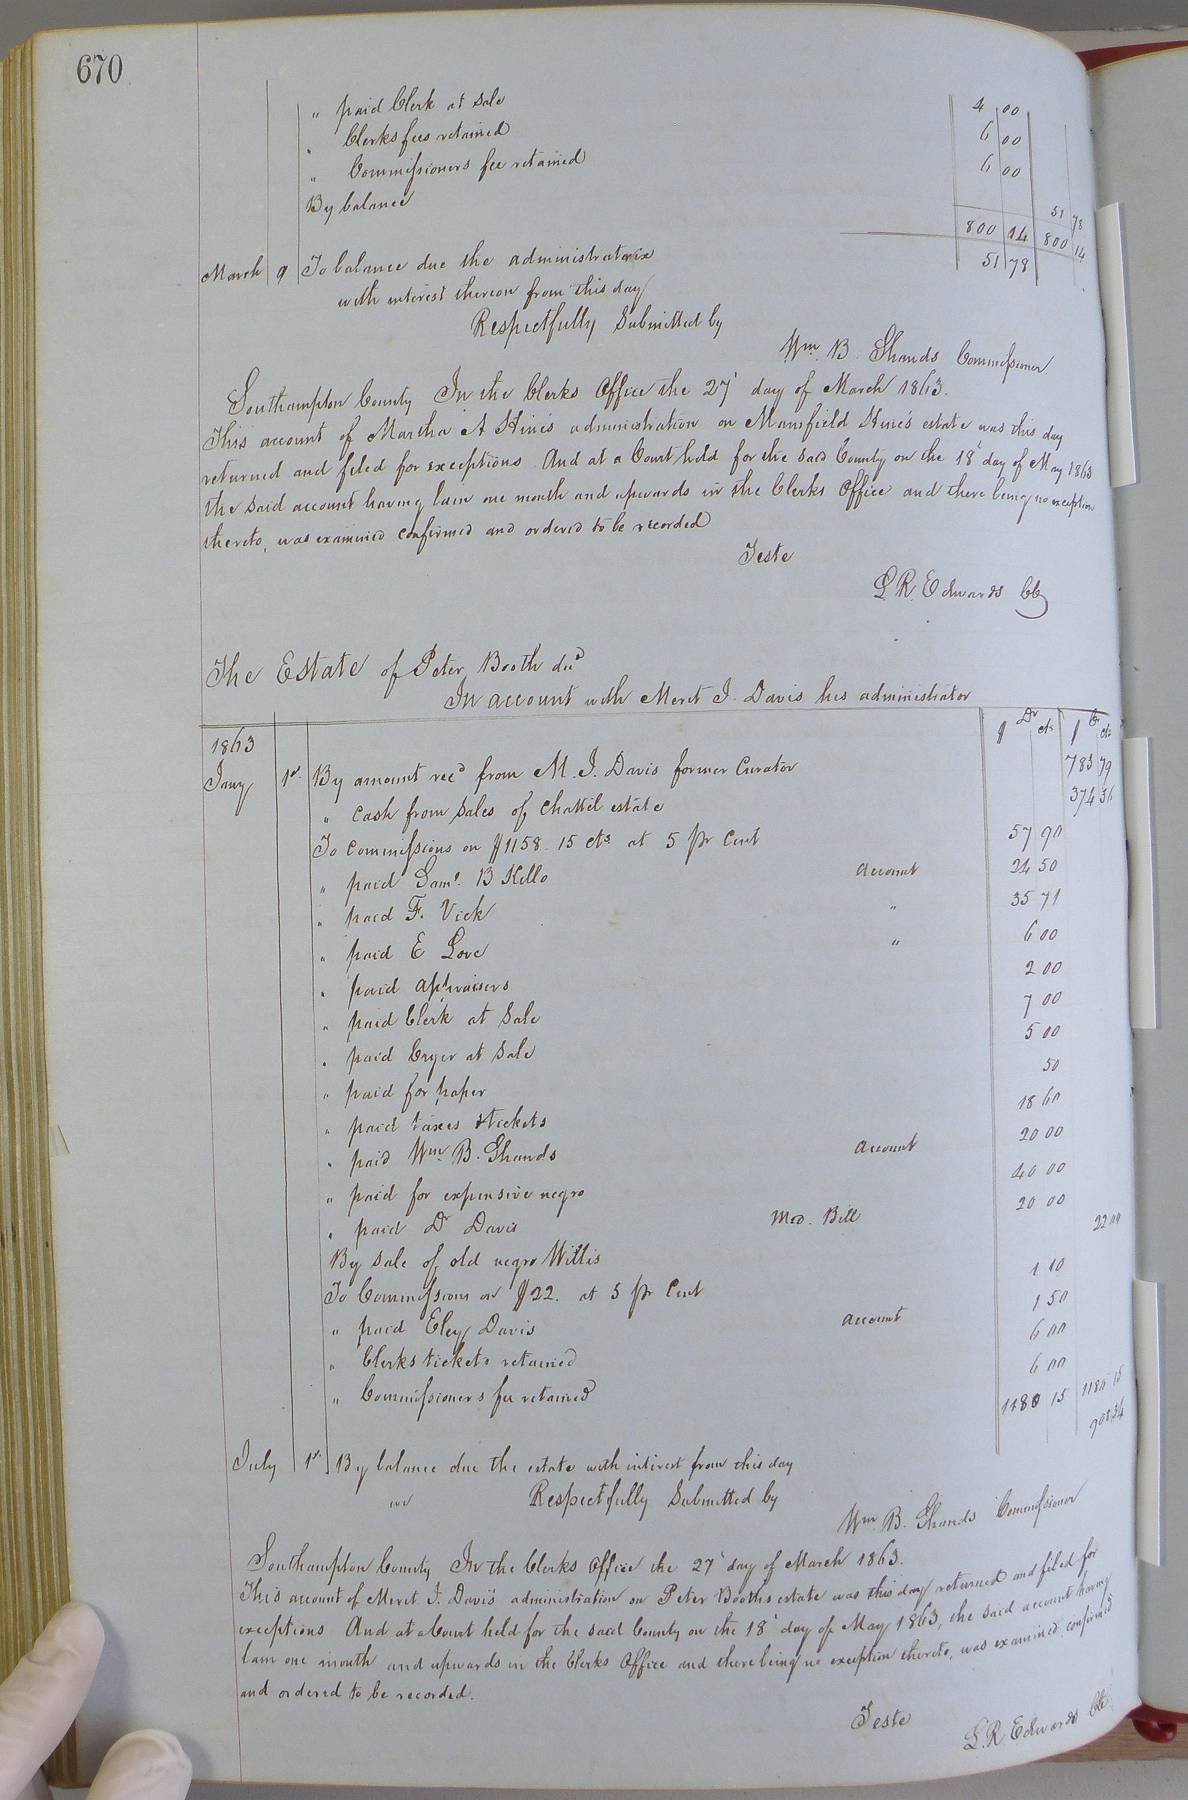 670
" paid Clerk at Sale 4 00
" Clerks fees retained 6 00
" Commissioners fee retained 6 00
By balance 51 78
800 14 800 14
March 9 To balance due the administratorix 51 78
with interest thereon from this day
Respectfully Submitted by
Wm. B. Shands Commissioner
Southampton County In the Clerks Office the 27' day of March 1863.
This account of Martha A Hines administration on Mansfield Hines estate was this day
returned and filed for exceptions. And at a Court held for the said County on the 18' day of May 1863
the said account having lain one month and upwards in the Clerks Office and there being no exception
thereto, was examined confirmed and ordered to be recorded
Teste
L. R. Edwards CC
The Estate of Peter Booth decd
In account with Meret J. Davis his administrator
1863 $ Dr cts $ Cr cts
Jany 1st By amount recd from M. J. Davis former Curator 783 79
" Cash from Sales of Chattel estate 374 36
To Commissions on $1158.15 cts at 5 pr Cent 57 90
" paid Saml. B Kello Account 24 50
" paid F. Vick " 35 71
" paid E Love " 6 00
" paid appraisers 2 00
" paid Clerk at Sale 7 00
" paid Cryer at Sale 5 00
" paid for paper 50
" paid taxes & tickets 18 60
" paid Wm. B. Shands Account 20 00
" paid for expensive negro 40 00
" paid Dr Davis Med. Bill 20 00
By sale of old negro Willis 22 00
To Commissions on $22. at 5 pr Cent 1 10
" paid Eley Davis Account 1 50
" Clerks tickets retained 6 00
" Commissioners fee retained 6 00
1180 15 1180 15
July 1st By balance due the estate with interest from this day 908.34
Respectfully Submitted by
Wm. B. Shands Commissioner
Southampton County In the Clerks Office the 27' day of March 1863.
This account of Meret J. Davis administration on Peter Booths estate was this day returned and filed for
exceptions And at a Court held for the said County on the 18' day of May 1863, the said account having
lain one month and upwards in the Clerks Office and there being no exception thereto, was examined, confirmed
and ordered to be recorded.
Teste
L. R. Edwards Clk